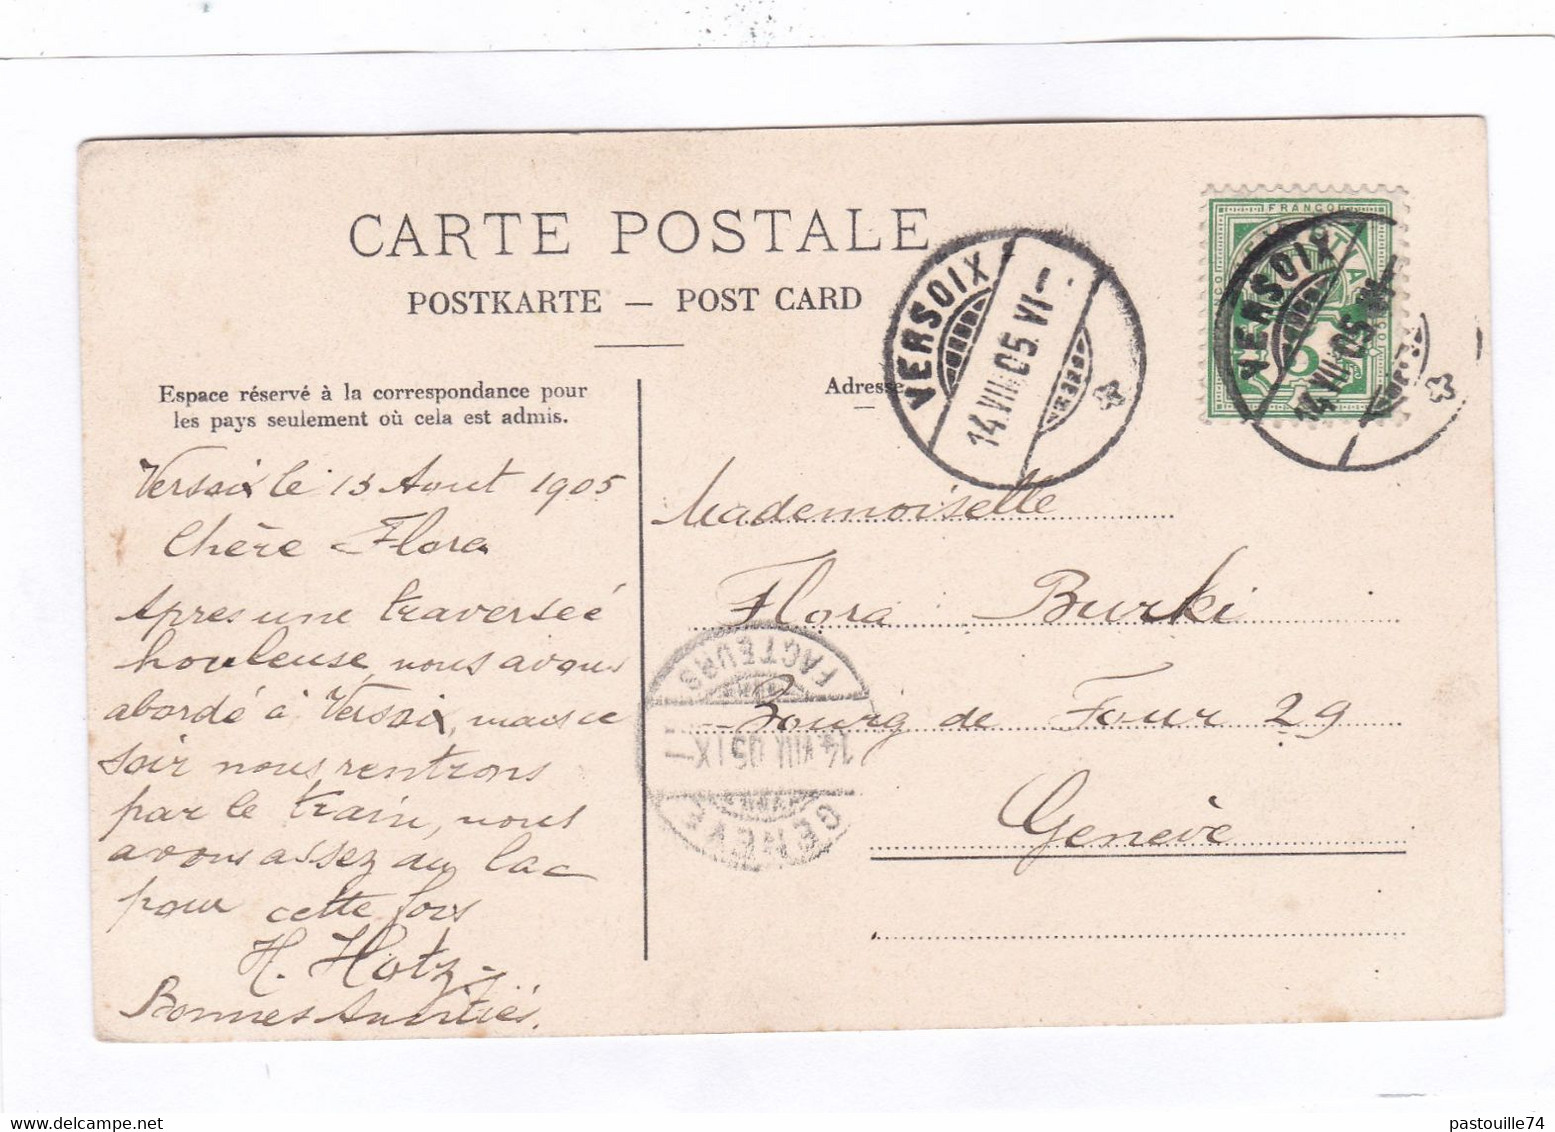 CARTE POSTALE
POSTKARTE — POST CARD
Espace réservé à la correspondance pour
les pays seulement où cela est admis.
Adresse
VERSOIX
14.VIII.05.VI
FRANCO
VERSOIX
14.VIII.05.VI
Versoix le 13 Aout 1905
Chère Flora
Apres une traverseé
houleuse nous avons
abordé à Versoix, mais ce
soir nous rentrons
par le train, nous
avons assez du lac
pour cette fois
H. Hotz
Bonnes Amitiés.
Mademoiselle
Flora Burki
Bourg de Four 29
Genève
GENEVE
14 VIII 05 IX
FACTEURS
pastouille74